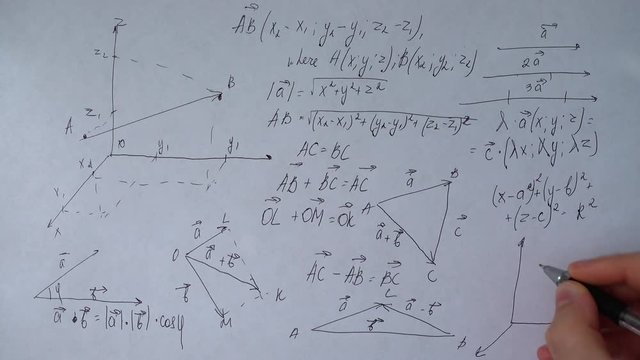 AB⃗(x₂-x₁; y₂-y₁; z₂-z₁),
where A(x; y; z); B(x₂; y₂; z₂)
|a⃗| = √x²+y²+z²
AB = √(x₂-x₁)²+(y₂-y₁)²+(z₂-z₁)²
AC = BC
AB⃗ + BC⃗ = AC⃗
OL⃗ + OM⃗ = OK⃗
AC⃗ - AB⃗ = BC⃗
a⃗
2a⃗
3a⃗
λ · a⃗(x; y; z) =
= c⃗ · (λx; λy; λz)
(x-a)²+(y-b)²+
+(z-c)² = R²
Z
z₂
B
z₁
A
O
y₁
y₁
x₂
x₁
X
a⃗
φ
b⃗
a⃗ · b⃗ = |a⃗| · |b⃗| · cosφ
L
a⃗
O
a⃗ + b⃗
b⃗
K
M
a⃗
B
A
c⃗
a⃗ + b⃗
C
a⃗
L
a⃗ - b⃗
b⃗
A
B